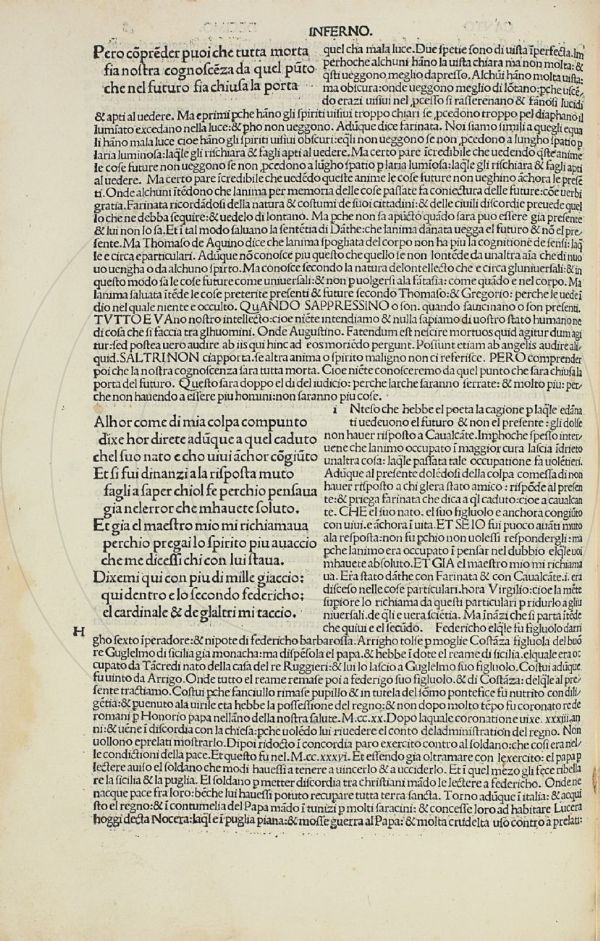 INFERNO.
Pero cõprẽder puoi che tutta morta
fia nostra cognoscẽza da quel pũto
che nel futuro fia chiusa la porta
quel cha mala luce. Due spetie sono di uista ĩperfecta. Im
perhoche alchuni hãno la uista chiara ma non molta: &
q̃sti ueggono meglio dapresso. Alchũi hãno molta uista:
ma obscura: onde ueggono meglio di lõtano: pche uscẽ
do erazi uisiui nel pcesso si rasserenano & fanosi lucidi
& apti al uedere. Ma eprimi pche hano gli spiriti uisiui troppo chiari se pcedono troppo pel diaphano il
lumiato excedano nella luce: & pho non ueggono. Adũque dice farinata. Noi siamo simili a quegli equa
li hãno mala luce cioe hãno gli spiriti uisiui obscuri: eq̃li non ueggono se non pcedono a lungho spatio p
laria luminosa: laq̃le gli rischiara & fagli apti al uedere. Ma certo pare ĩcredibile che uedendo q̃ste anime
le cose future non ueggono se non pcedono a lũgho spatio p laria luminosa: laq̃le gli rischiara & fagli apti
al uedere. Ma certo pare ĩcredibile che uedẽdo queste anime le cose future non ueghino achora le presẽ
ti. Onde alchuni ĩtẽdono che lanima per memoria delle cose passate fa coniectura delle future: cõe uerbi
gratia. Farinata ricordãdosi della natura & costumi de suoi cittadini: & delle ciuili discordie preuede quel
lo che ne debba seguire: & uedelo di lontano. Ma pche non fa apũcto quãdo sara puo essere gia presente
& lui non lo sa. Et ĩ tal modo saluano la sentẽtia di Dãthe: che lanima dãnata uegga el futuro & nõ el pre
sente. Ma Thomaso de Aquino dice che lanima spogliata del corpo non ha piu la cognitione de sensi: laq̃
le e circa eparticulari. Adũque nõ conosce piu questo che quello se non lontẽde da unaltra aĩa che di nuo
uo uengha o da alchuno spirto. Ma conosce secondo la natura delontellecto che e circa gluniuersali: & in
questo modo sa le cose future come uniuersali: & non puolgersi ala fãtasia: come quãdo e nel corpo. Ma
lanima saluata ĩtẽde le cose preterite presenti & future secondo Thomaso: & Gregorio: perche le uede ĩ
dio nel quale niente e occulto. QVANDO SAPPRESSINO o son. quando sauicinano o son presenti.
TVTTO E VAno nostro intellecto: cioe niẽte intendiamo & nulla sapiamo di uostro stato humano ne
di cosa che si faccia tra glhuomini. Onde Augustino. Fatendum est nescire mortuos quid agitur dum agi
tur: sed postea uero audire ab iis qui hinc ad eos moriẽdo pergunt. Possunt etiam ab angelis audire ali
quid. SALTRI NON ci apporta. se altra anima o spirito maligno non ci referisce. PERO comprender
poi che la nostra cognoscenza sara tutta morta. Cioe niẽte conosceremo da quel punto che sara chiusa la
porta del futuro. Questo sara doppo el di del iudicio: perche larche saranno serrate: & molto piu: per
che non hauendo a essere piu homini: non saranno piu cose.
Alhor come di mia colpa compunto
dixe hor direte adũque a quel caduto
chel suo nato e cho uiui ãchor cõgiũto
Et si fui dinanzi a la risposta muto
fagli a saper chiol fe perchio pensaua
gia nel error che mhauete soluto.
Et gia el maestro mio mi richiamaua
perchio pregai lo spirito piu auaccio
che me dicessi chi con lui staua.
Dixemi qui con piu di mille giaccio:
qui dentro e lo secondo federicho:
el cardinale & de glaltri mi taccio.
i Nteso che hebbe el poeta la cagione p laq̃le edãna
ti uedeuono el futuro & non el presente: gli dolse
non hauer risposto a Caualcãte. Imphoche spesso inter
uene che lanimo occupato ĩ maggior cura lascia ĩdrieto
unaltra cosa: laq̃le passata tale occupatione fa uolẽtieri.
Adũque al presente dolẽdosi della colpa comessa di non
hauer risposto a chi glera stato amico: rispõde al presen
te: & priega farinata che dica a q̃l caduto: cioe a caualcan
te. CHE el suo nato. el suo figluolo e anchora congiũto
con uiui. e ãchora ĩ uita. ET SE IO fui puoco auãti muto
ala resposta: non fu pchio non uolessi respondergli: ma
pche lanimo era occupato ĩ pensar nel dubbio elq̃le uoi
mhauete absoluto. ET GIA el maestro mio mi richiama
ua. Era stato dãthe con Farinata & con Caualcãte. i. era
disceso nelle cose particulari. hora Virgilio: cioe la mẽte
supiore lo richiama da questi particulari p ridurlo a gliu
niuersali. de q̃li e uera sciẽtia. Ma ĩnãzi che si parta ĩtẽde
che quiui e el secũdo. Federicho elq̃le fu figluolo darri
H
gho sexto ĩperadore: & nipote di federicho barbarossa. Arrigho tolse p moglie Costãza figluola del buõ
re Guglelmo di sicilia gia monacha: ma dispẽsola el papa. & hebbe ĩ dote el reame di sicilia. elquale era oc
cupato da Tãcredi nato della casa del re Ruggieri: & lui lo lascio a Guglelmo suo figluolo. Costui adũque.
fu uinto da Arrigo. Onde tutto el reame remase poi a federigo suo figluolo. & di Costãza: delq̃le al pre
sente tractiamo. Costui pche fanciullo rimase pupillo & in tutela del sõmo pontefice fu nutrito con dili
gẽtia: & puenuto ala uirile eta hebbe la possessione del regno: & non dopo molto tẽpo fu coronato re de
romani p Honorio papa nellãno della nostra salute. M.cc.xx. Dopo laquale coronatione uixe. xxxiii. an
ni: & uẽne ĩ discordia con la chiesa: pche uolẽdo lui riuedere el conto deladministration del regno. Non
uollono eprelati mostrarlo. Dipoi ridocto ĩ concordia paro exercito contro al soldano: che cosi era nel
le condictioni della pace. Et questo fu nel. M.cc.xxxvi. Et essendo gia oltramare con lexercito: el papa p
lectere auiso el soldano che modi hauessi a tenere a uincerlo & a ucciderlo. Et ĩ quel mezo gli fece ribella
re la sicilia & la puglia. El soldano p metter discordia tra christiani mãdo le lectere a federicho. Onde ne
nacque pace fra loro: bẽche lui hauessi potuto recupare tutta terra sancta. Torno adũque ĩ italia: & acqui
sto el regno: & ĩ contumelia del Papa mãdo ĩ tunizi p molti saracini: & concesse loro ad habitare Lucera
hoggi decta Nocera: laq̃l e ĩ puglia piana: & mosse guerra al Papa: & molta crudelta uso contro a prelati: